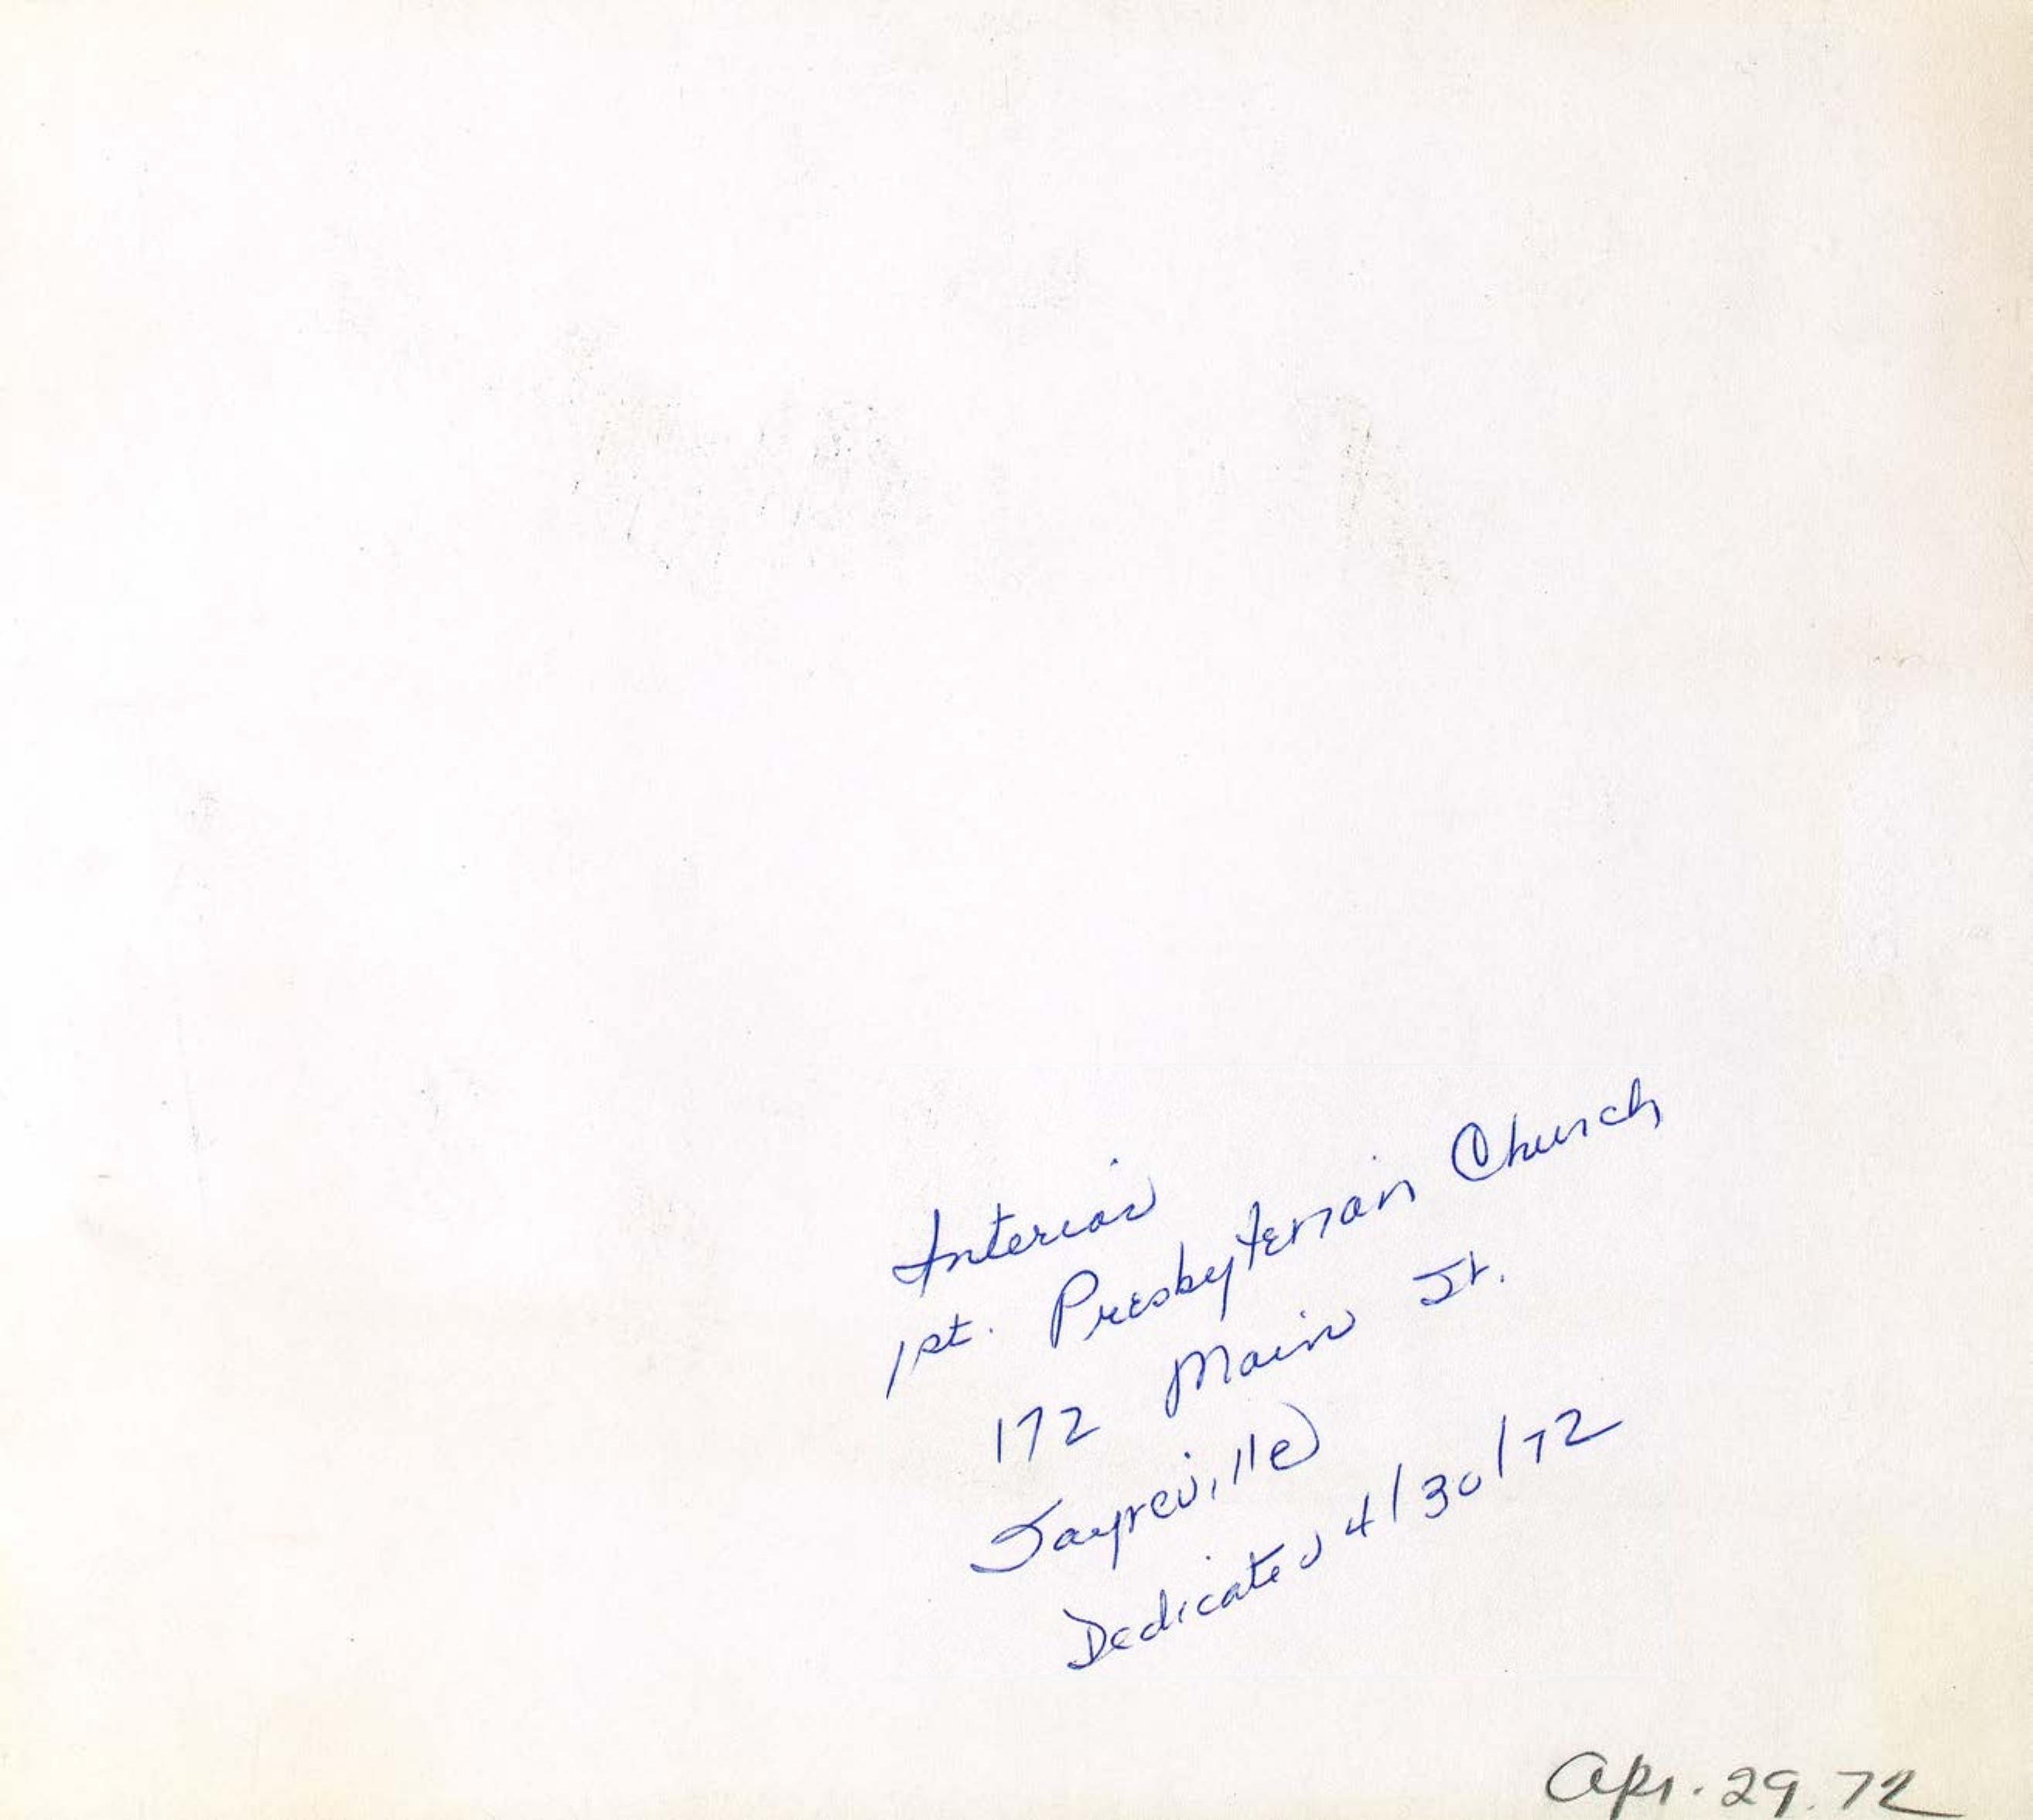 Interior
1st. Presbyterian Church
172 Main St.
Sayreville
Dedicated 4/30/72
Apr. 29. 72